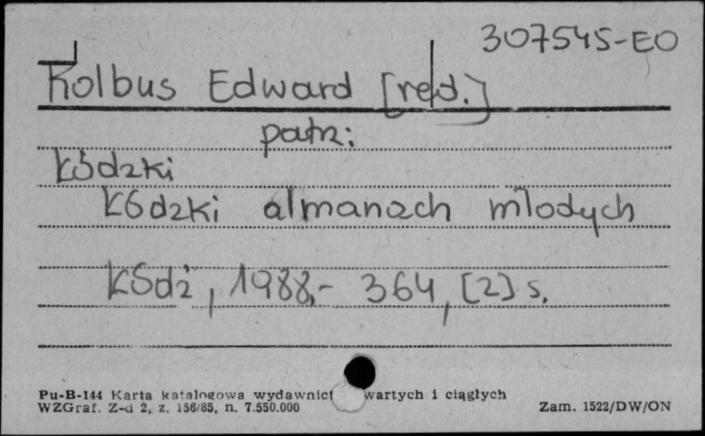 307545-EO
Kolbus Edward [red.]
patrz:
Łódzki
Łódzki almanach młodych
Łódź, 1988,- 364, [2] s.
Pu-B-144 Karta katalogowa wydawnict wartych i ciągłych
WZGraf. Z-d 2, z. 156/85, n. 7.550.000
Zam. 1522/DW/ON